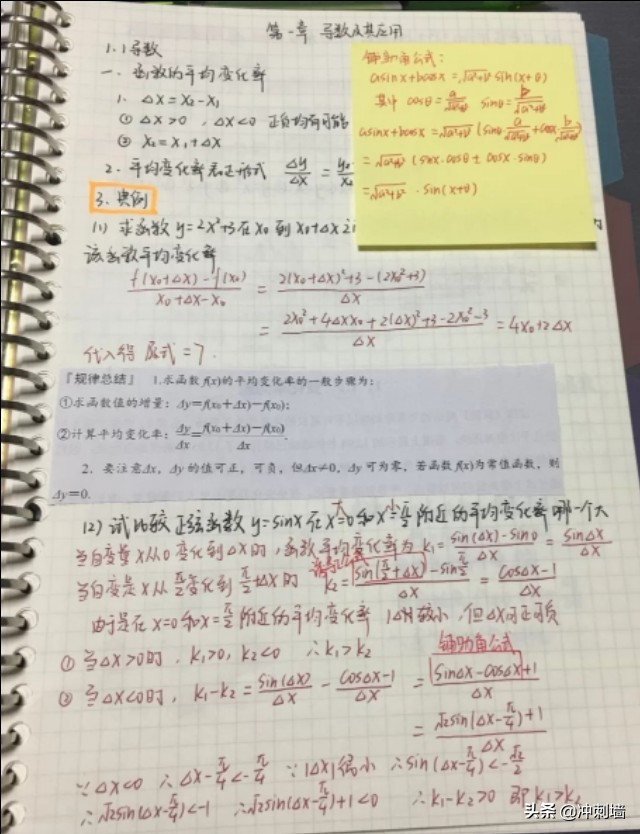 第一章 导数及其应用
1.1导数
一、函数的平均变化率
1. Δx=x₂-x₁
① Δx>0，Δx<0 正负均有可能
② x₂=x₁+Δx
2. 平均变化率 形式 Δy/Δx = y₂
3. 实例
辅助角公式：
asinx+bcosx=√a²+b² sin(x+θ)
其中 cosθ=a/√a²+b² sinθ=b/√a²+b²
asinx+bcosx=√a²+b² (sinx·a/√a²+b²+cosx·b/√a²+b²)
=√a²+b² (sinx·cosθ±cosx·sinθ)
=√a²+b² ·sin(x+θ)
(1) 求函数 y=2x²+3在 x₀ 到 x₀+Δx
该函数平均变化率
f(x₀+Δx)-f(x₀)/x₀+Δx-x₀ = 2(x₀+Δx)²+3-(2x₀²+3)/Δx
= 2x₀²+4Δxx₀+2(Δx)²+3-2x₀²-3/Δx =4x₀+2Δx
代入得 原式=7.
『规律总结』 1.求函数 f(x)的平均变化率的一般步骤为：
①求函数值的增量：Δy=f(x₀+Δx)-f(x₀)；
②计算平均变化率：Δy/Δx=f(x₀+Δx)-f(x₀)/Δx.
2．要注意Δx，Δy 的值可正，可负，但Δx≠0，Δy 可为零，若函数 f(x)为常值函数，则
Δy=0.
(2) 试比较正弦函数 y=sinx 在 x=0和 x=π/2 附近的平均变化率哪一个大
大 小
当自变量x从0变化到Δx时，函数平均变化率为 k₁=sin(Δx)-sin0/Δx=sinΔx/Δx
当自变量x从π/2变化到π/2+Δx时 k₂=sin(π/2+Δx)-sinπ/2/Δx=cosΔx-1/Δx
由于是在 x=0和x=π/2附近的平均变化率 |Δx|较小，但Δx可正可负
① 当Δx>0时，k₁>0，k₂<0 ∴k₁>k₂
辅助角公式
② 当Δx<0时，k₁-k₂=sin(Δx)/Δx - cosΔx-1/Δx = sinΔx-cosΔx+1/Δx
= √2sin(Δx-π/4)+1/Δx
∵Δx<0 ∴Δx-π/4<-π/4 ∵|Δx|很小 ∴sin(Δx-π/4)<-√2/2
∴√2sin(Δx-π/4)<-1 ∴√2sin(Δx-π/4)+1<0 ∴k₁-k₂>0 即k₁>k₂
头条@冲刺墙